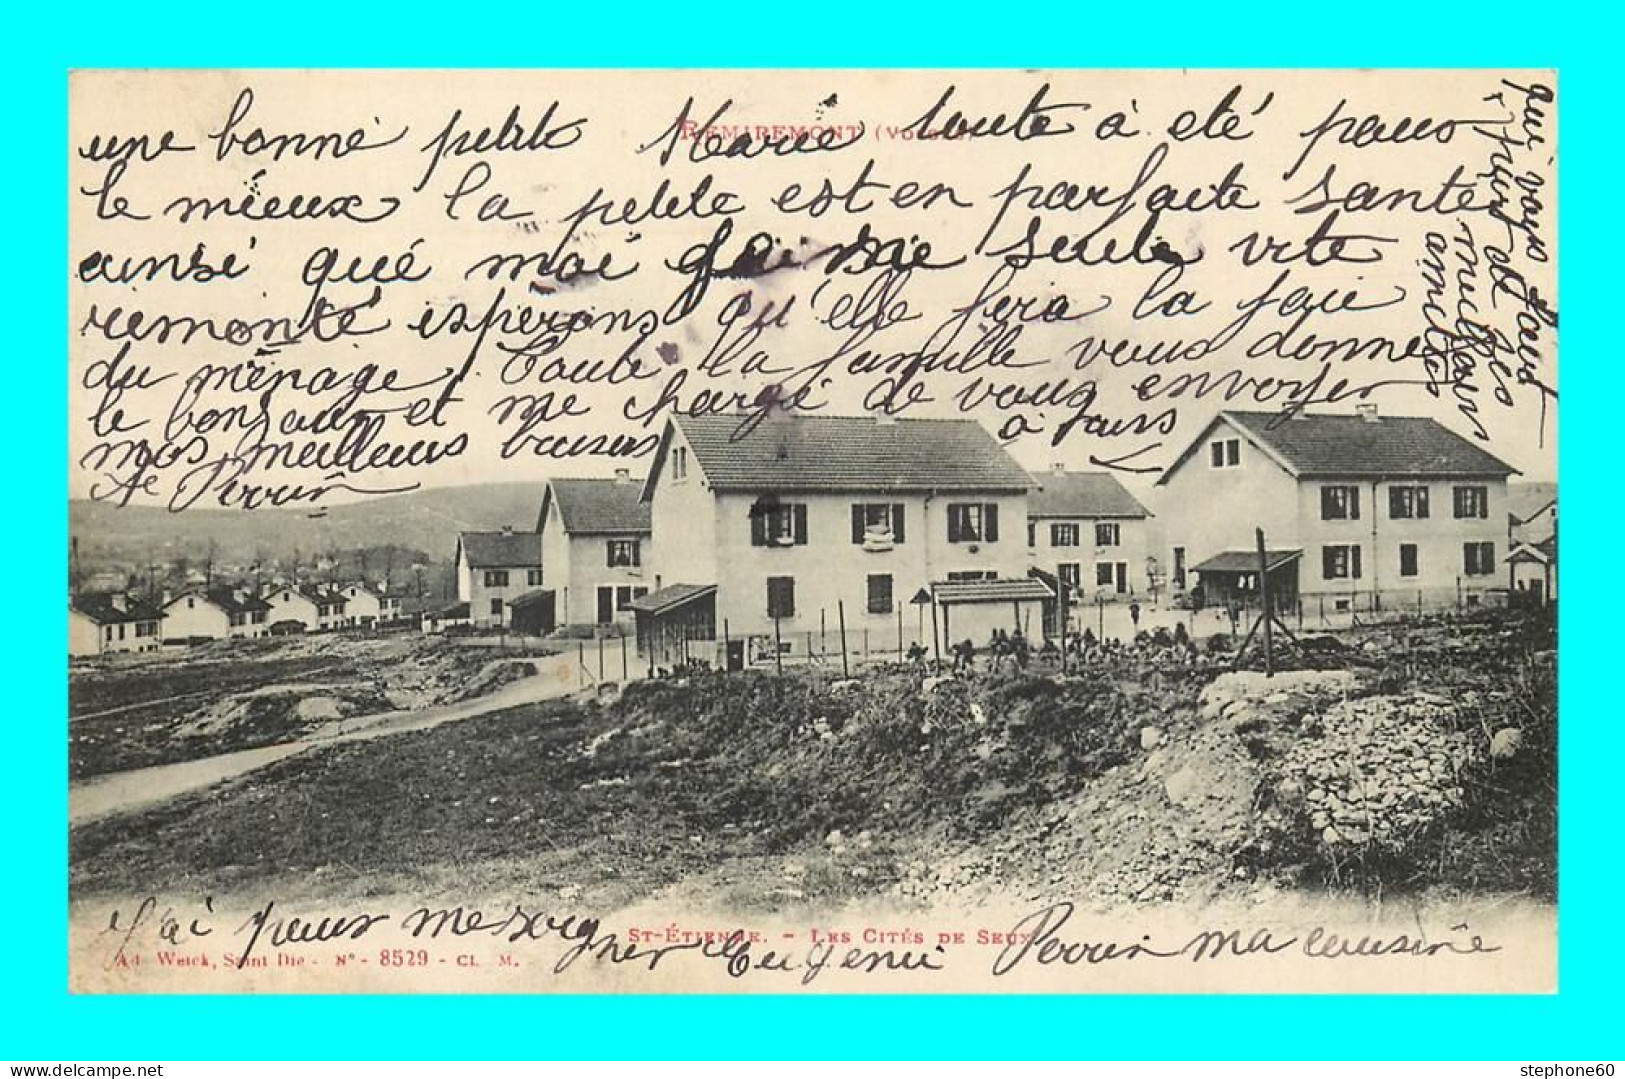 REMIREMONT (Vosges)
une bonne petite Marie toute à eté pour
le mieux la petite est en parfaite santé
ainsi que moi seule vite
remonté esperons qu'elle fera la joie
du ménage. Toute la famille vous donne
le bonjour et me charge de vous envoyer
mos meilleurs baisers à tous
Perrin
qui vous
amitiés
J'ai pour me soigner Eugenie Perrin ma cousine
ST-ÉTIENNE. - LES CITÉS DE SEUX
Ad. Weick, Saint Dié - N° - 8529 - CL. M.
stephone60